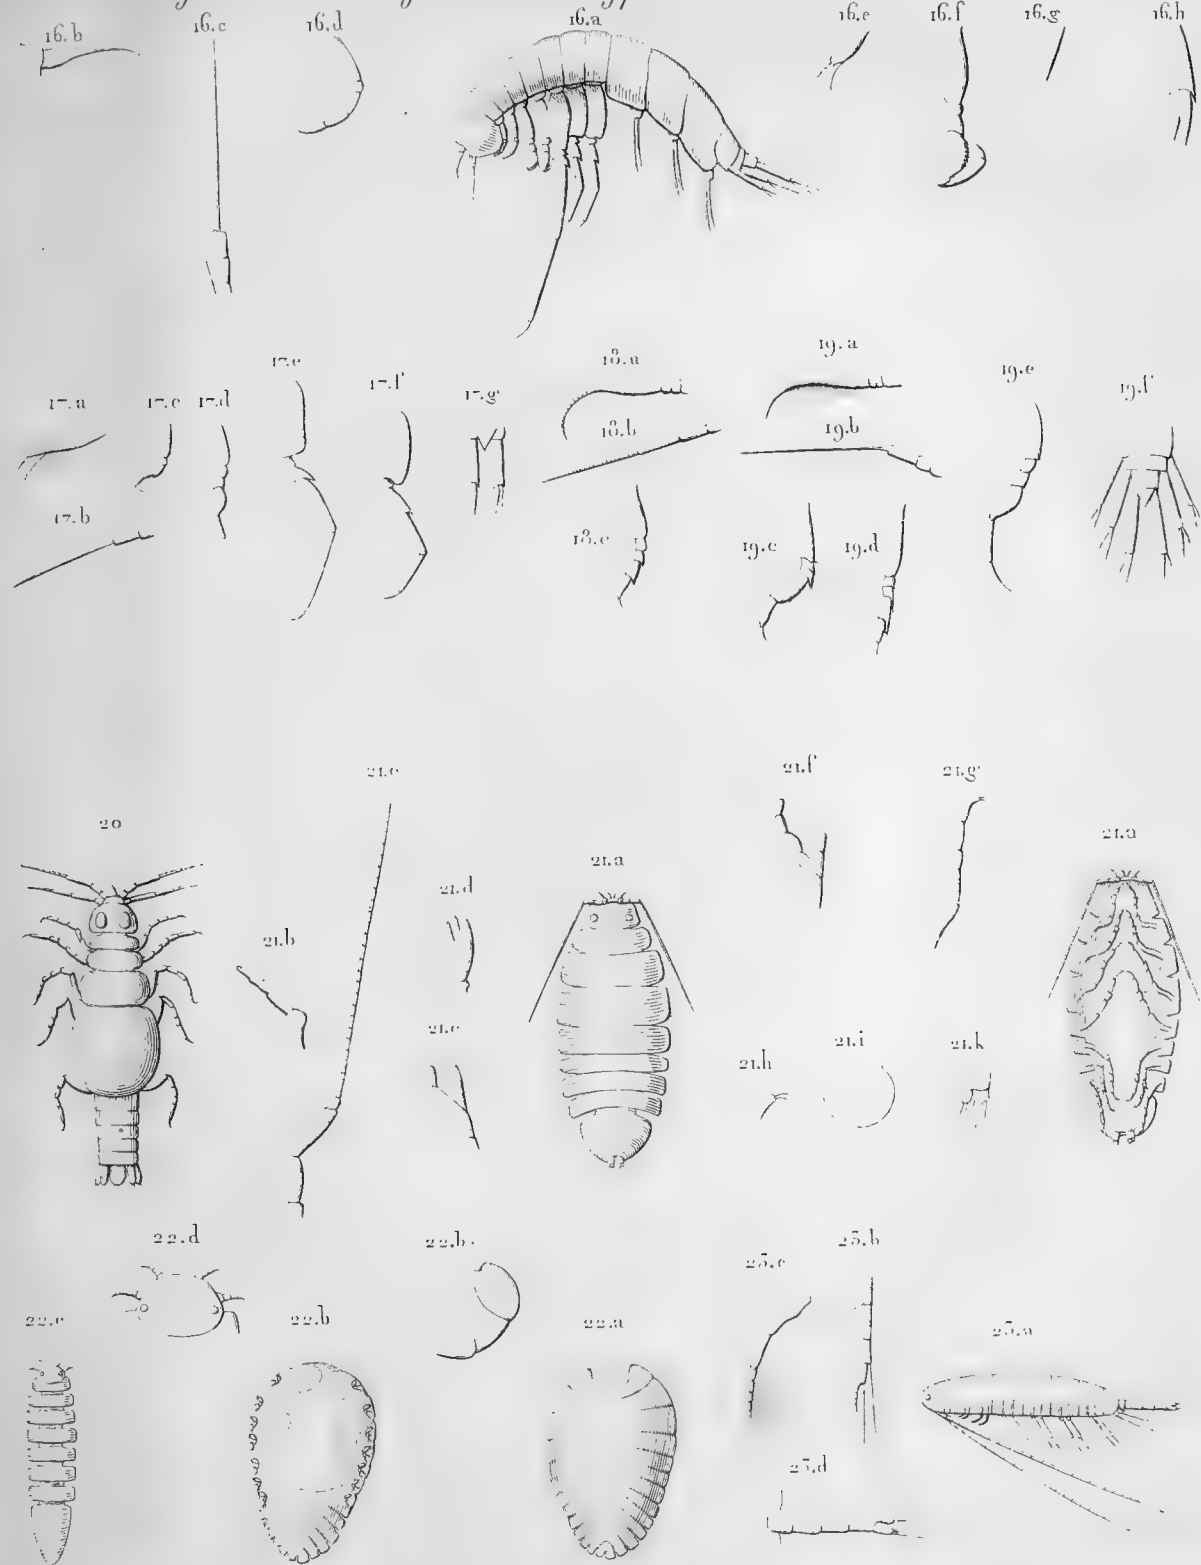 16.a
16.b
16.c
16.d
16.e
16.f
16.g
16.h
17.a
17.c
17.d
17.e
17.f
17.g
18.a
19.a
19.e
19.f
18.b
19.b
17.b
18.c
19.c
19.d
21.c
21.f
21.g
20
21.a
21.d
21.a
21.b
21.e
21.h
21.i
21.k
22.d
22.b
23.c
23.b
22.e
22.b
22.a
23.a
23.d